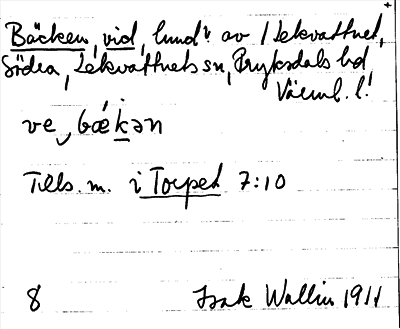 Bäcken, vid, lund i av Lekvattnet,
Södra, Lekvattnets sn, Fryksdals hd
Värml. l.
ve bækən
Tills. m. i Torpet 7:10
8 Isak Wallin 1911